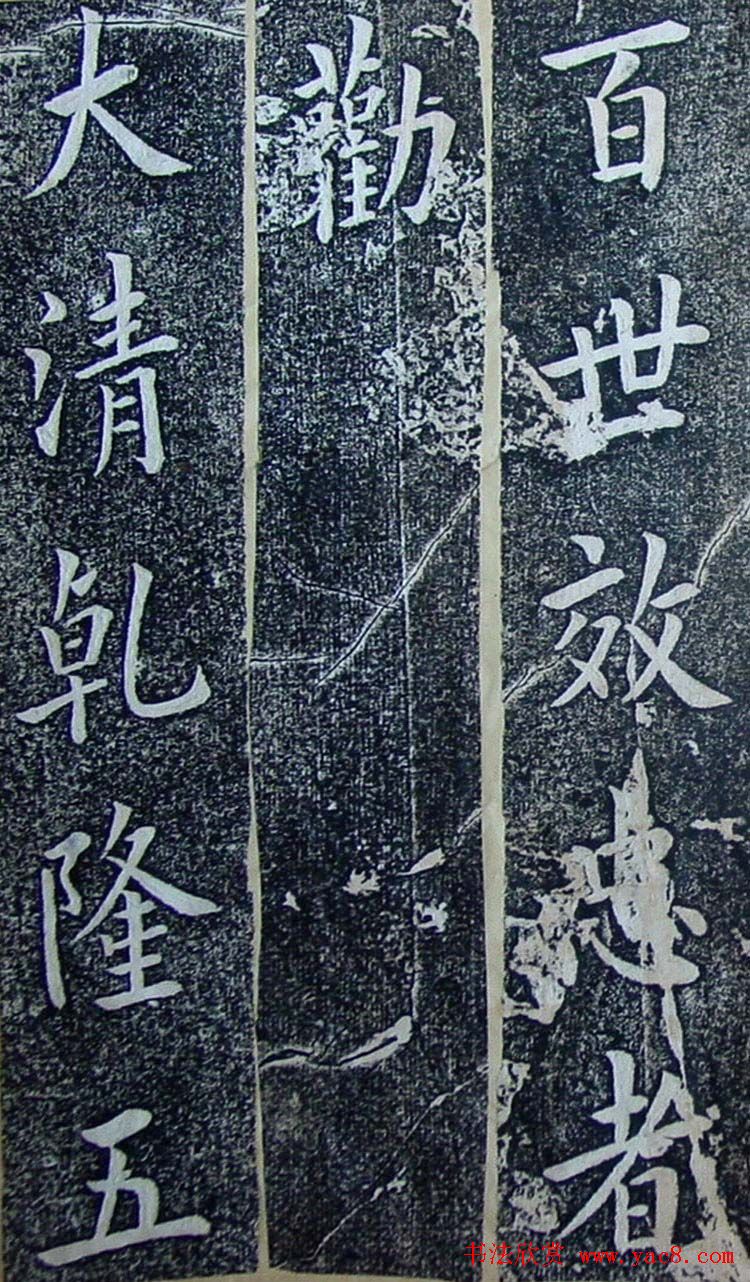 百世效忠者
勸
大清乾隆五
书法欣赏 www.yac8.com